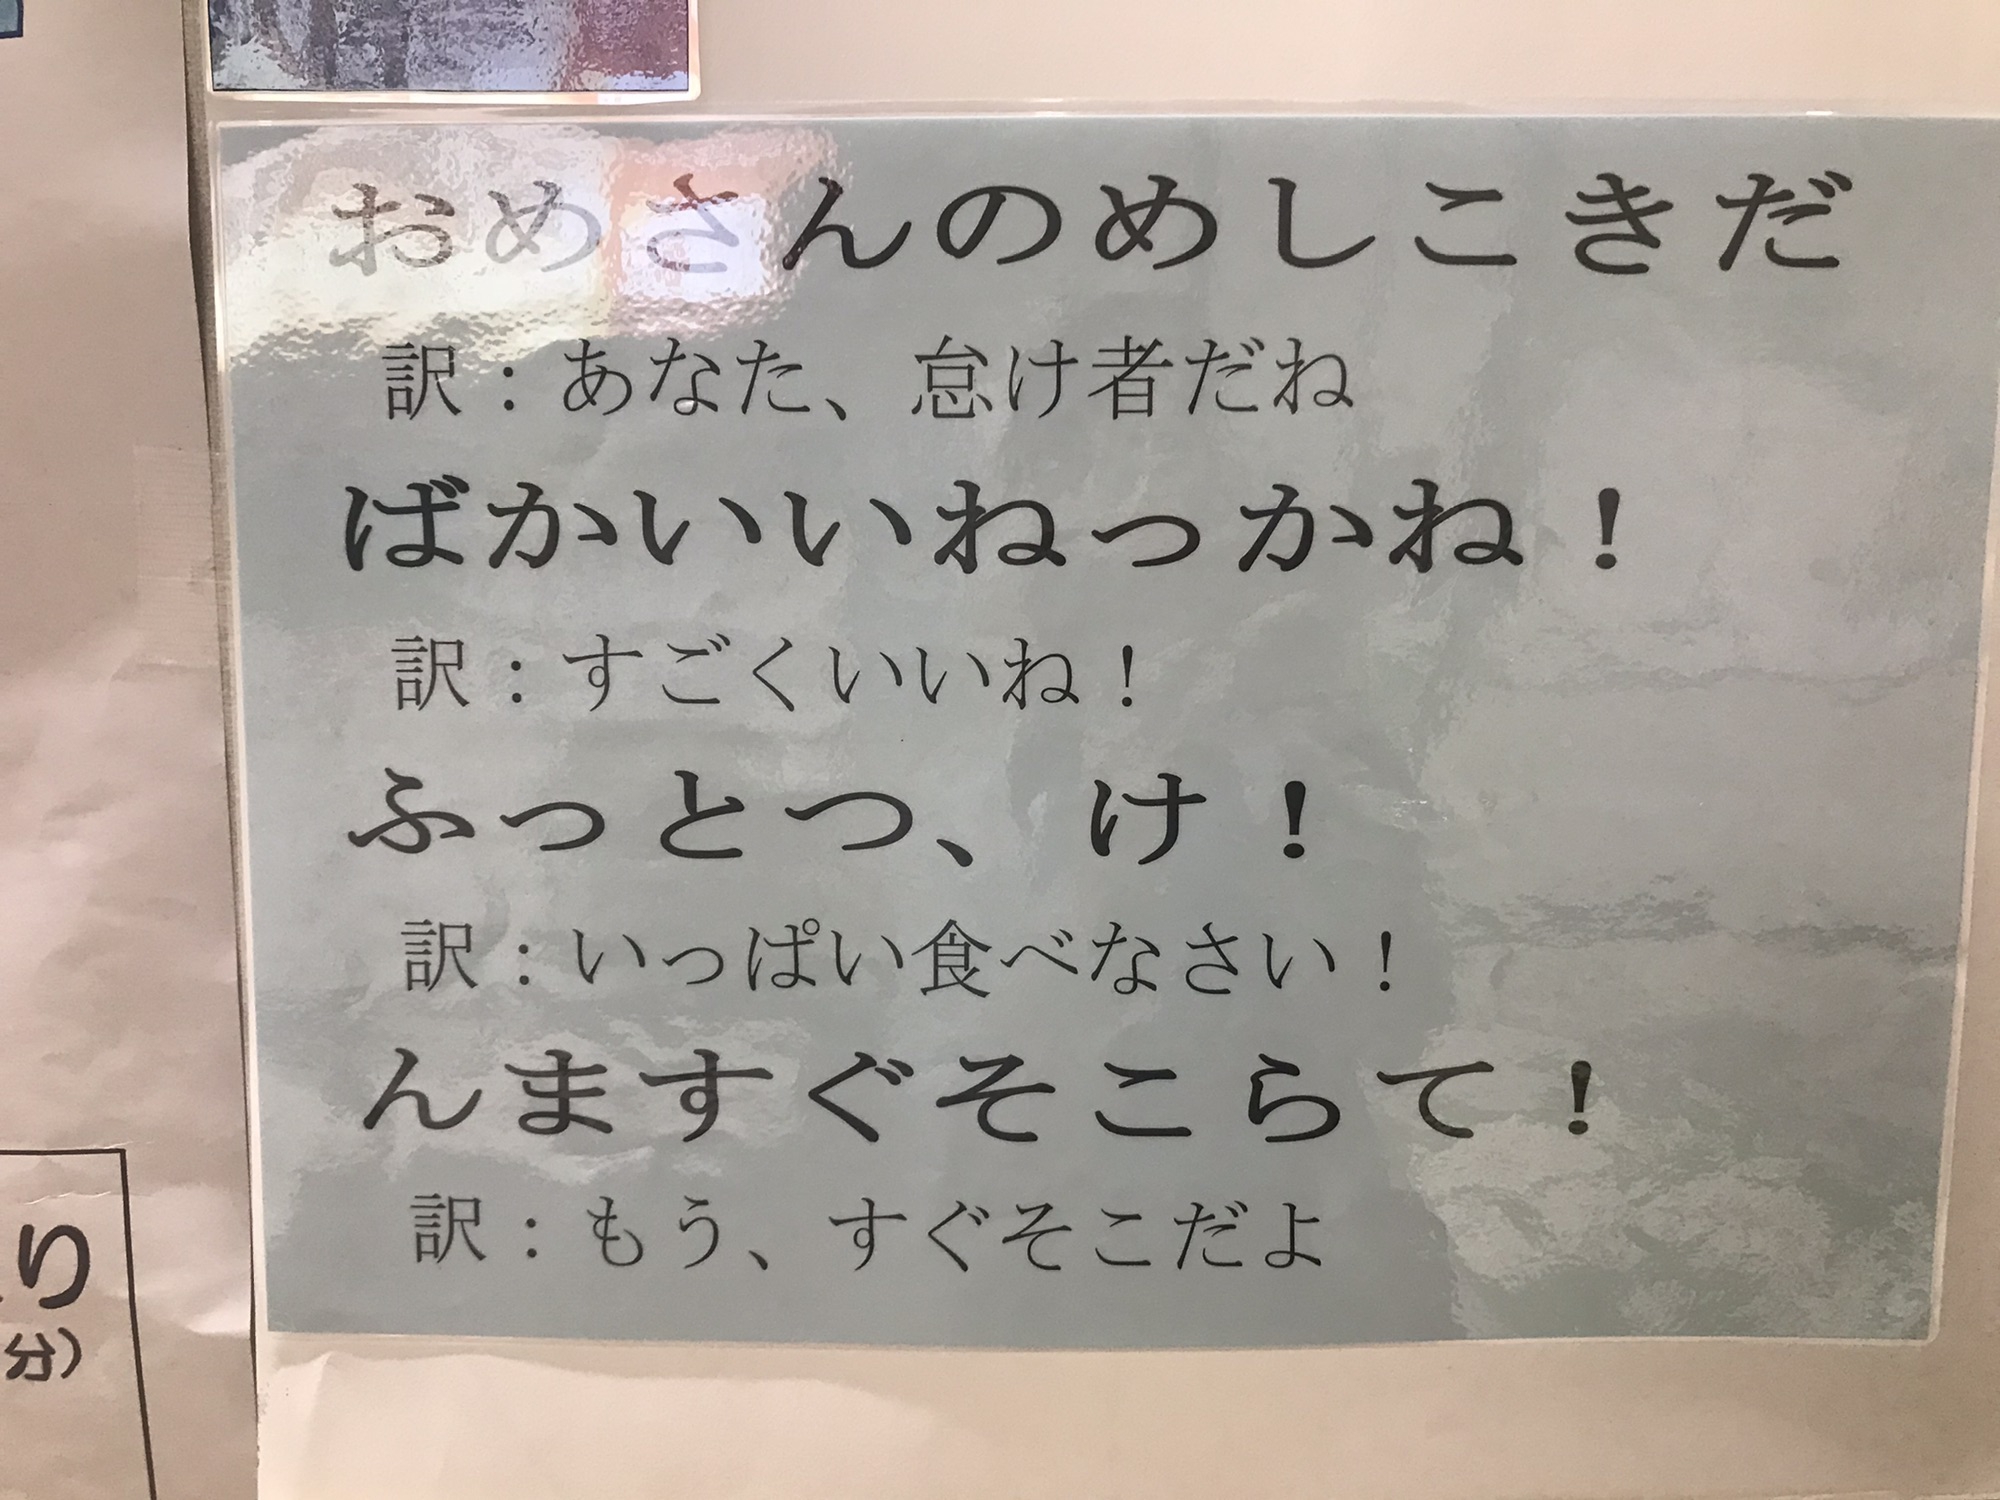 おめさんのめしこきだ
訳：あなた、怠け者だね
ばかいいねっかね！
訳：すごくいいね！
ふっとつ、け！
訳：いっぱい食べなさい！
んますぐそこらて！
訳：もう、すぐそこだよ
り
分）